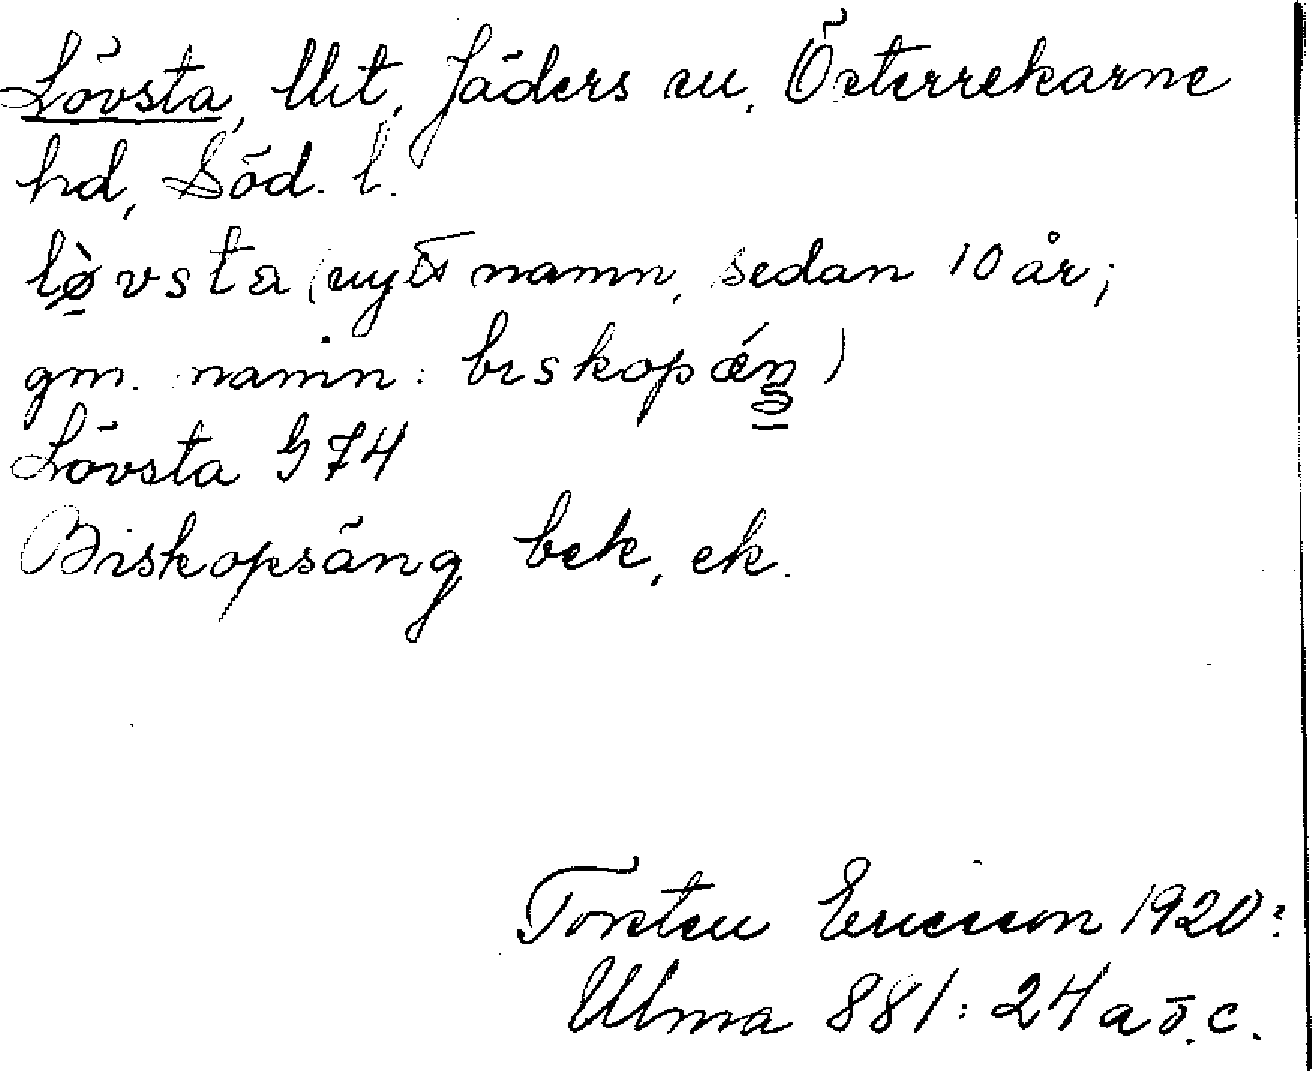 Lövsta, Utt, Jäders sn, Österrekarne
hd, Söd. l.
lø̀vsta (nytt namn, sedan 10 år;
gm. namn: bɩskopǽŋ)
Lövsta G 74
Biskopsäng bek, ek.
Torsten Ericsson 1920:
Ulma 881: 24 a ö. c.